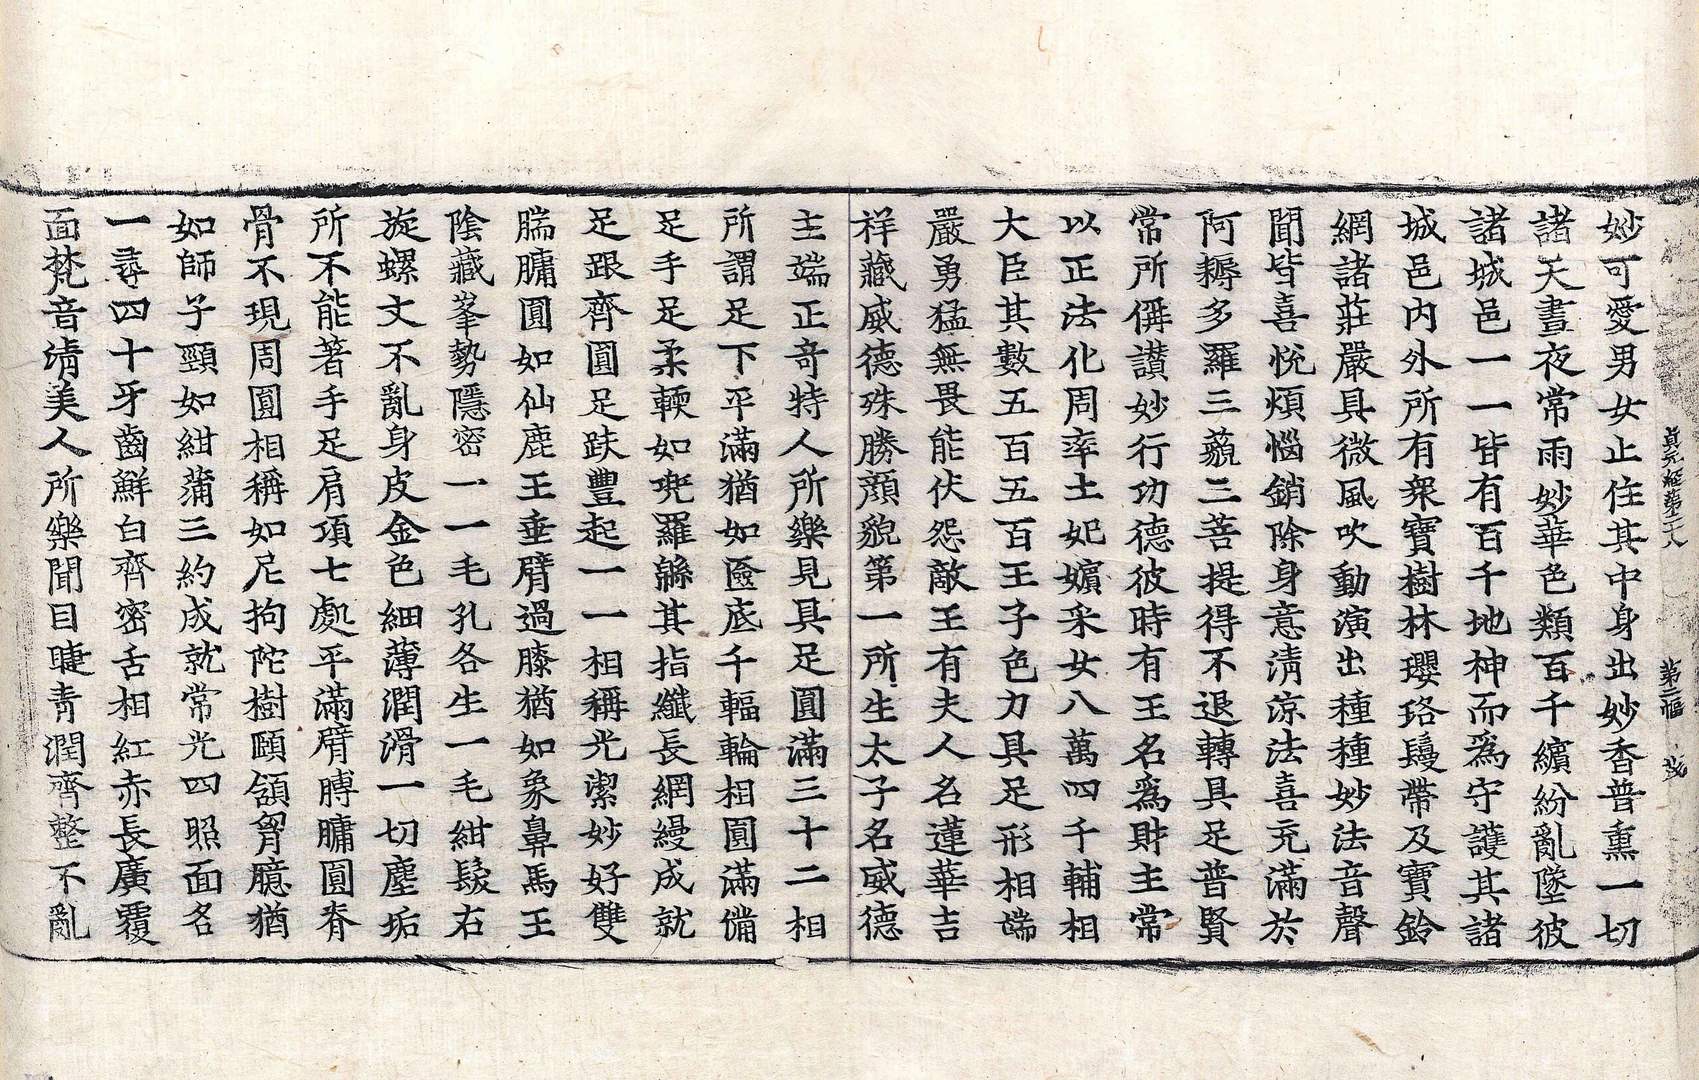 貞元經第二十八 第二幅 茂
妙可愛男女止住其中身出妙香普熏一切
諸天晝夜常雨妙華色類百千繽紛亂墜彼
諸城邑一一皆有百千地神而爲守護其諸
城邑內外所有衆寶樹林瓔珞鬘帶及寶鈴
網諸莊嚴具微風吹動演出種種妙法音聲
聞皆喜悅煩惱銷除身意淸涼法喜充滿於
阿耨多羅三藐三菩提得不退轉具足普賢
常所偁讃妙行功德彼時有王名爲財主常
以正法化周率土妃嬪采女八萬四千輔相
大臣其數五百五百王子色力具足形相端
嚴勇猛無畏能伏怨敵王有夫人名蓮華吉
祥藏威德殊勝顏貌第一所生太子名威德
主端正奇特人所樂見具足圓滿三十二相
所謂足下平滿猶如奩底千輻輪相圓滿備
足手足柔輭如兜羅緜其指纖長網縵成就
足跟齊圓足趺豐起一一相稱光潔妙好雙
腨𦟛圓如仙鹿王垂臂過膝猶如象鼻馬王
陰藏峯勢隱密一一毛孔各生一毛紺髮右
旋螺文不亂身皮金色細薄潤滑一切塵垢
所不能著手足肩項七處平滿臂膊𦟛圓脊
骨不現周圓相稱如尼拘陀樹頤頷胷臆猶
如師子頸如紺蒲三約成就常光四照面各
一尋四十牙齒鮮白齊密舌相紅赤長廣覆
面梵音淸美人所樂聞目睫靑潤齊整不亂